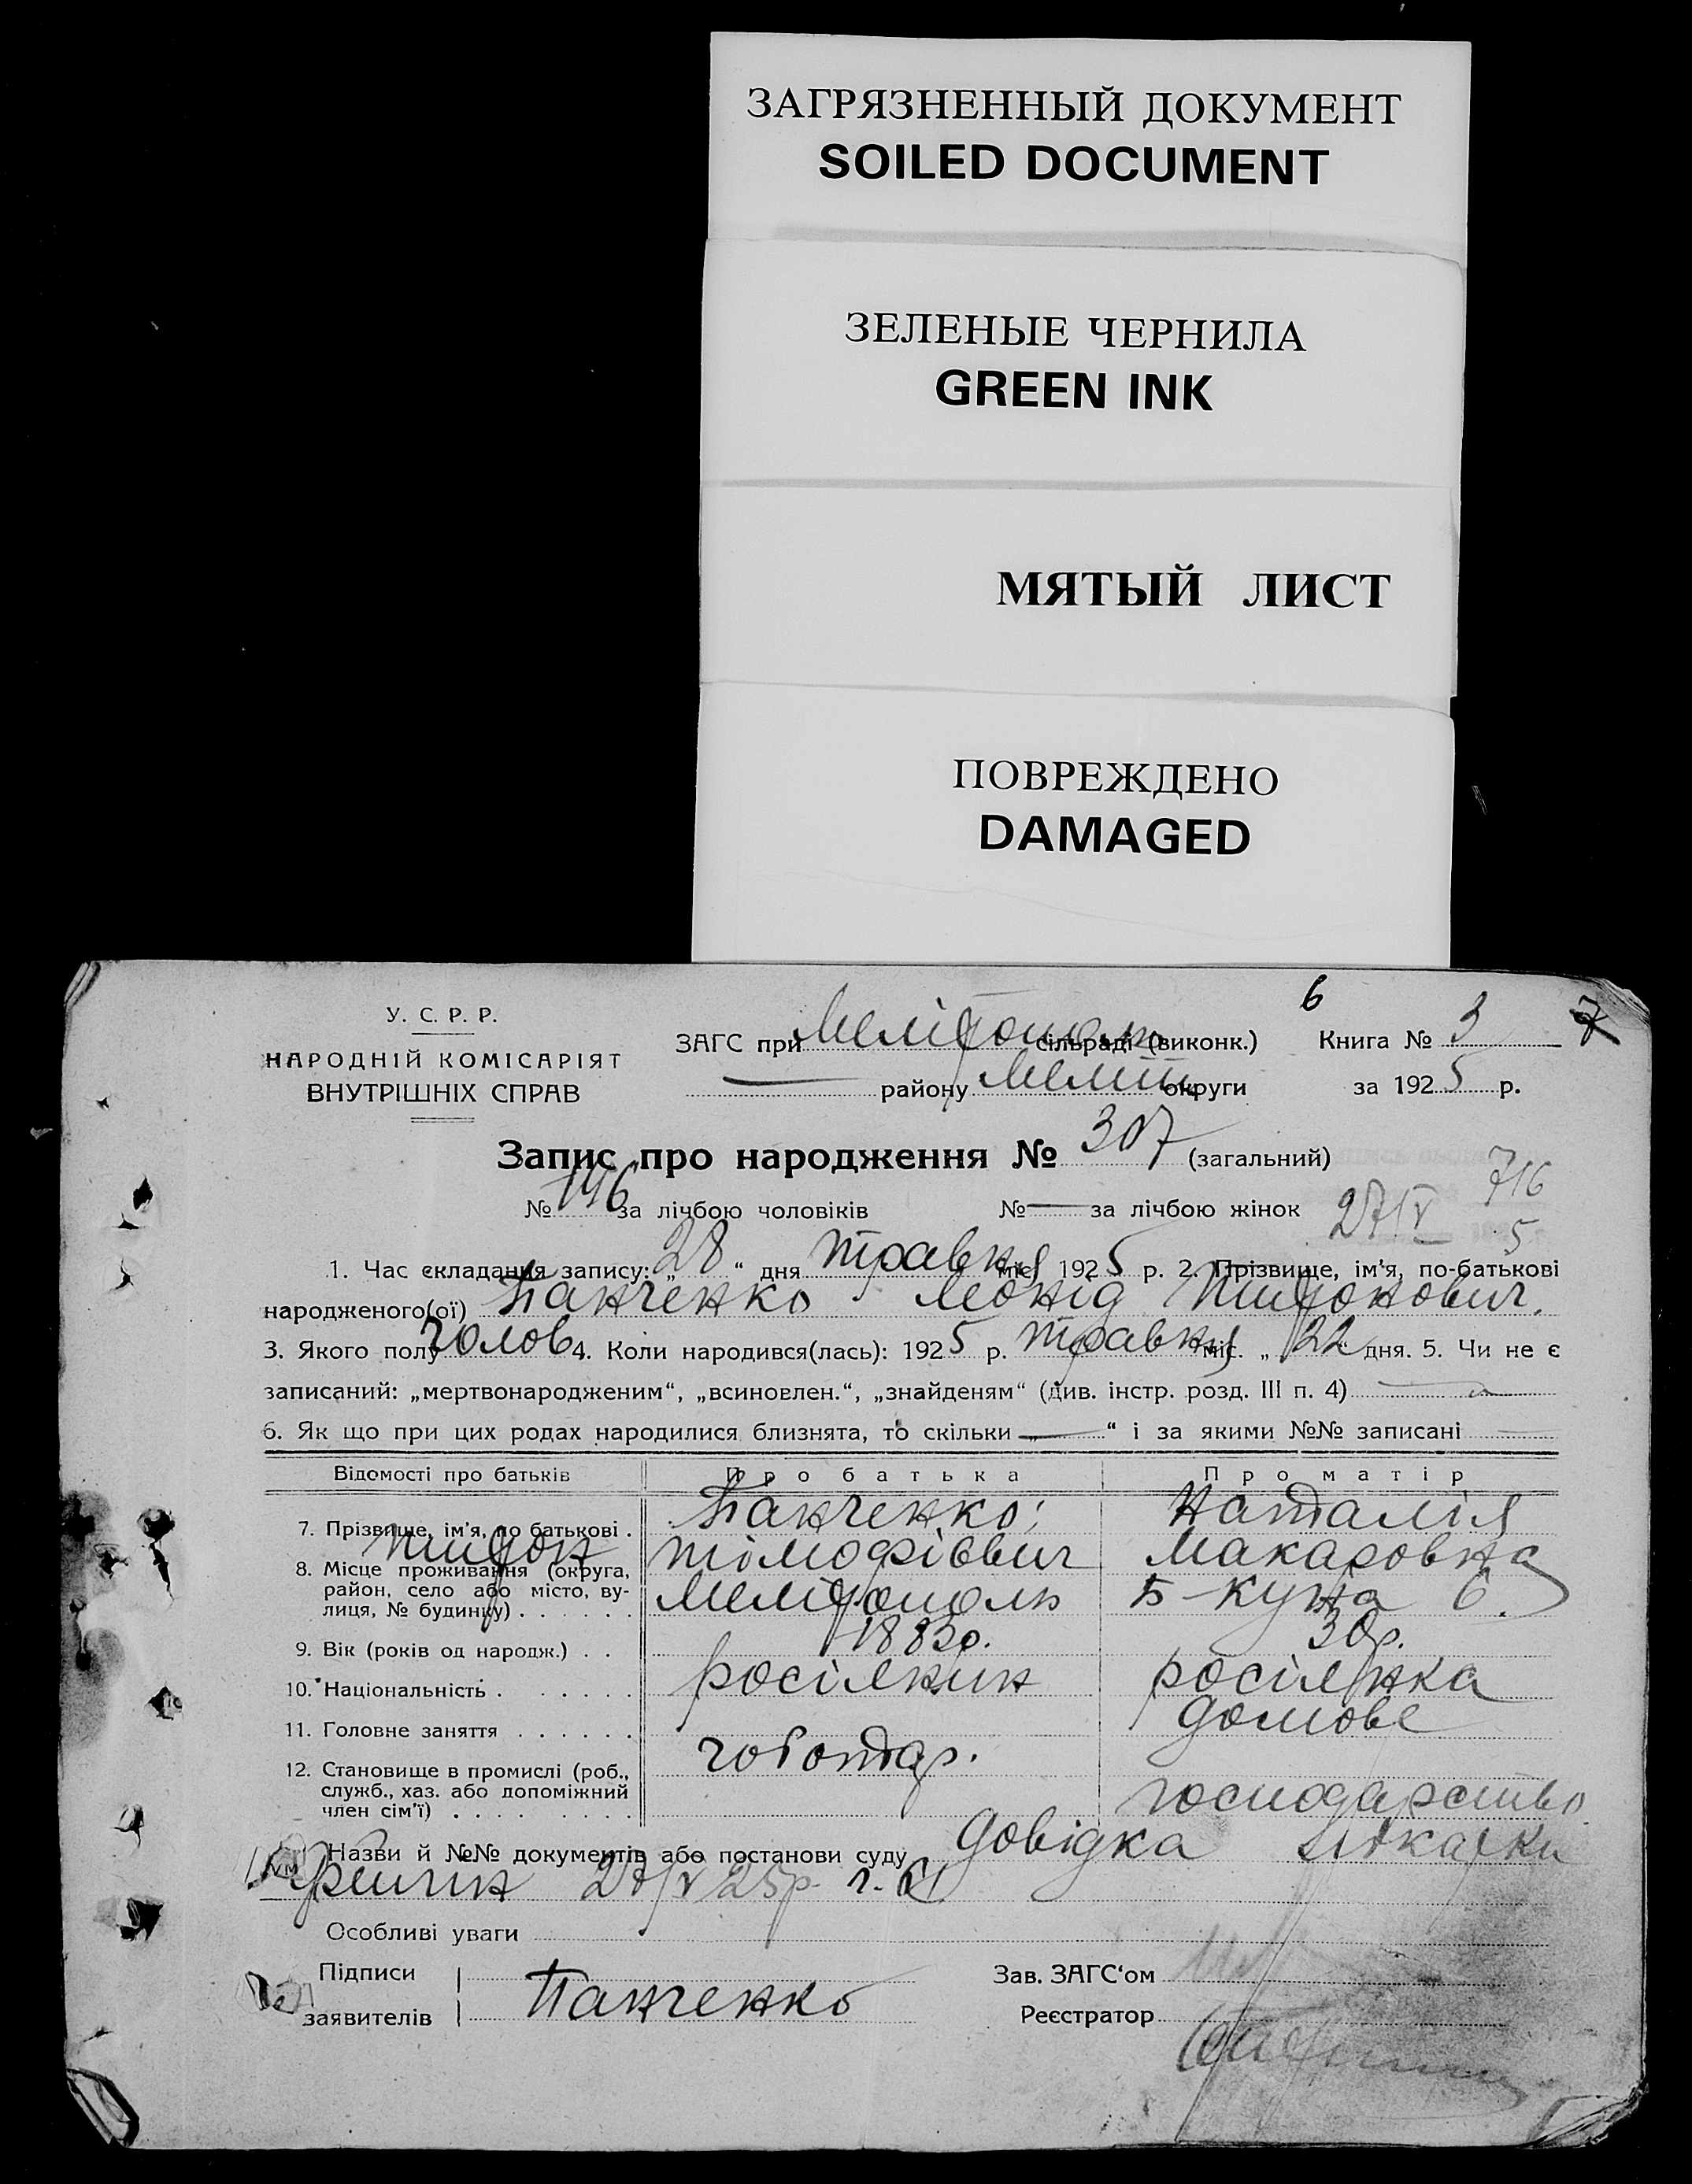 ЗАГРЯЗНЕННЫЙ ДОКУМЕНТ
SOILED DOCUMENT
ЗЕЛЕНЫЕ ЧЕРНИЛА
GREEN INK
МЯТЫЙ ЛИСТ
ПОВРЕЖДЕНО
DAMAGED
6 7
У. С. Р. Р.
НАРОДНІЙ КОМІСАРІЯТ
ВНУТРІШНІХ СПРАВ
ЗАГС при Мелітопол сільраді (виконк.) Книга № 3
— району Меліт. округи за 1925 р.
Запис про народження № 307 (загальний)
№ 146 за лічбою чоловіків № — за лічбою жінок
27/V 716
5
1. Час складання запису: „28“ дня травня міс. 1925 р. 2. Прізвище, ім'я, по-батькові
народженого(ої) Панченко Леонід Тит́онович.
3. Якого полу чолов 4. Коли народився(лась): 1925 р. травня міс. „22 дня. 5. Чи не є
записаний: „мертвонародженим“, „всиновлен.“, „знайденям“ (див. інстр. розд. III п. 4) —
6. Як що при цих родах народилися близнята, то скільки „—“ і за якими №№ записані —
Відомості про батьків Про батька Про матір
7. Прізвище, ім'я, по батькові . Панченко; Наталія
Тімофієвич Макаровна
8. Місце проживання (округа, район, село або місто, вулиця, № будинку) . . . . . . Мелітополь Б-Куна 6.
9. Вік (років од народж.) . . 1883р. 30р.
10. Національність . . . . . . росіянин росіянка
11. Головне заняття . . . . . . чоботар. домове
12. Становище в промислі (роб., служб., хаз. або допоміжний член сім'ї) . . . . . . . . господарство
Назви й №№ документів або постанови суду довідка лікарки
27/V 25р.
Особливі уваги
Підписи
заявителів Панченко
Зав. ЗАГС'ом
Реєстратор